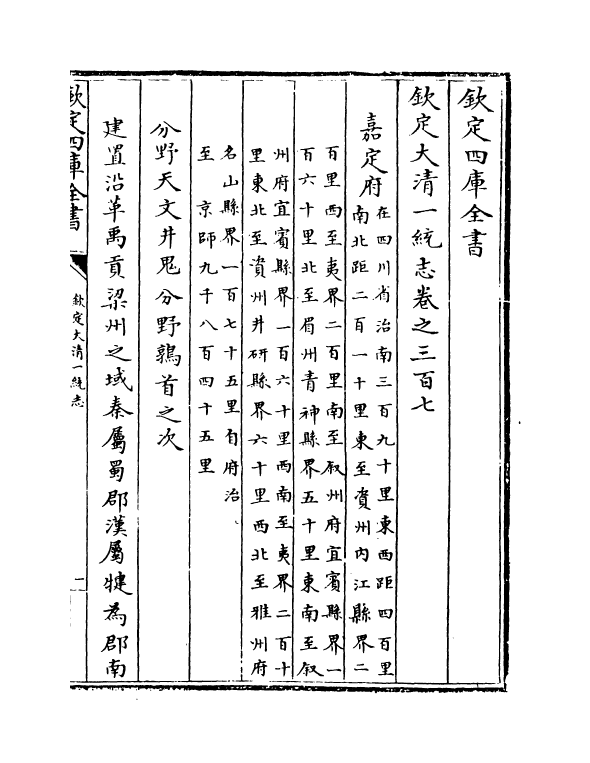 欽定四庫全書
欽定大清一統志卷之三百七
嘉定府
在四川省治南三百九十里東西距四百里
南北距二百一十里東至資州内江縣界二
百里西至夷界二百里南至叙州府宜賓縣界一
百六十里北至眉州青神縣界五十里東南至叙
州府宜賓縣界一百六十里西南至夷界二百十
里東北至資州井研縣界六十里西北至雅州府
名山縣界一百七十五里自府治
至 京師九千八百四十五里
分野天文井鬼分野鶉首之次
建置沿革禹貢梁州之域秦屬蜀郡漢屬犍為郡南
欽定四庫全書
欽定大清一統志